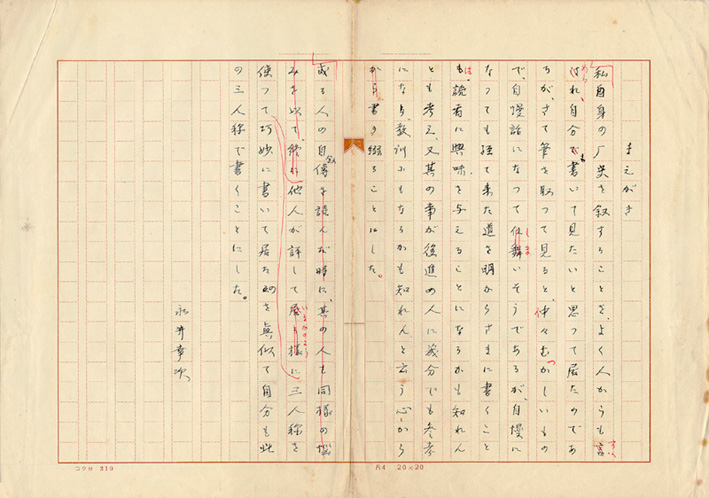 まえがき
私自身の厂史を叙することを、よく人からも言
はれ、自分でも書いて見たいと思って居たのであ
るが、さて筆を取って見ると、仲々むつかしいもの
で、自慢話になって仕舞いそうであるが、自慢に
なっても経て来た道を明からさまに書くこと
も、読者に興味を与えることになるかも知れん
とも考え、又其の事が後進の人に幾分でも参考
になり、教訓にもなるかも知れんと云う心から
書き綴ることにした。
或る人の自叙傳を読んだ時に、其の人も同様の悩
みを以て、他人が評して居る様に三人称を
使って巧妙に書いて居たのを真似て自分も此
の三人称で書くことにした。
永井幸次
コクヨ 310
R4 20×20